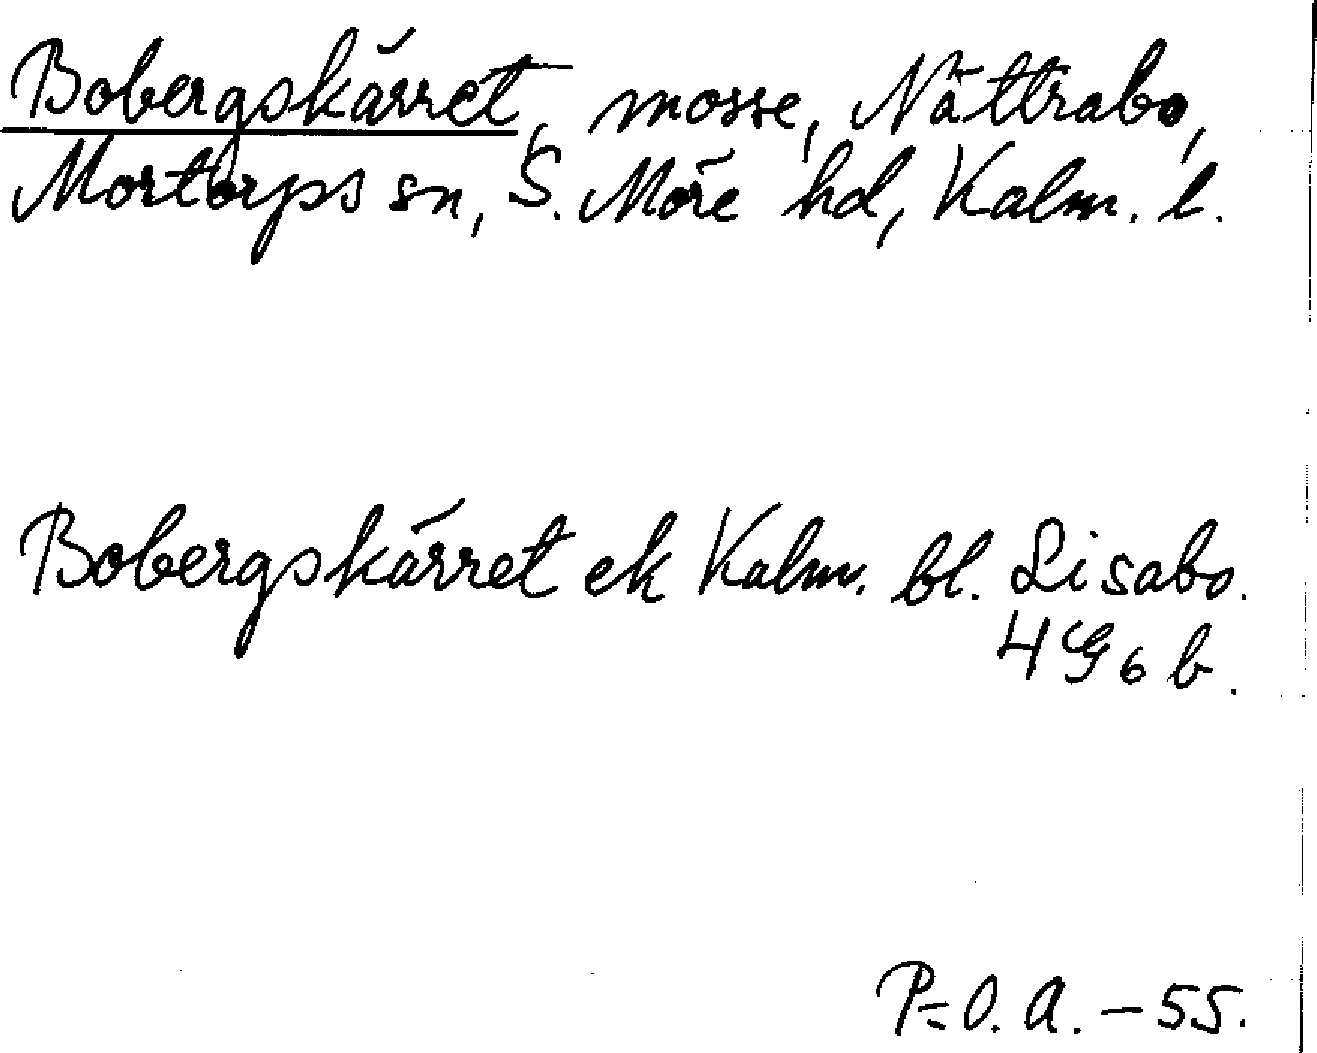 Bobergskärret, mosse, Nättrabo,
Mortorps sn, S. Möre hd, Kalm. l.
Bobergskärret ek Kalm. bl. Lisabo.
4G6 b.
P=O. A. – 55.